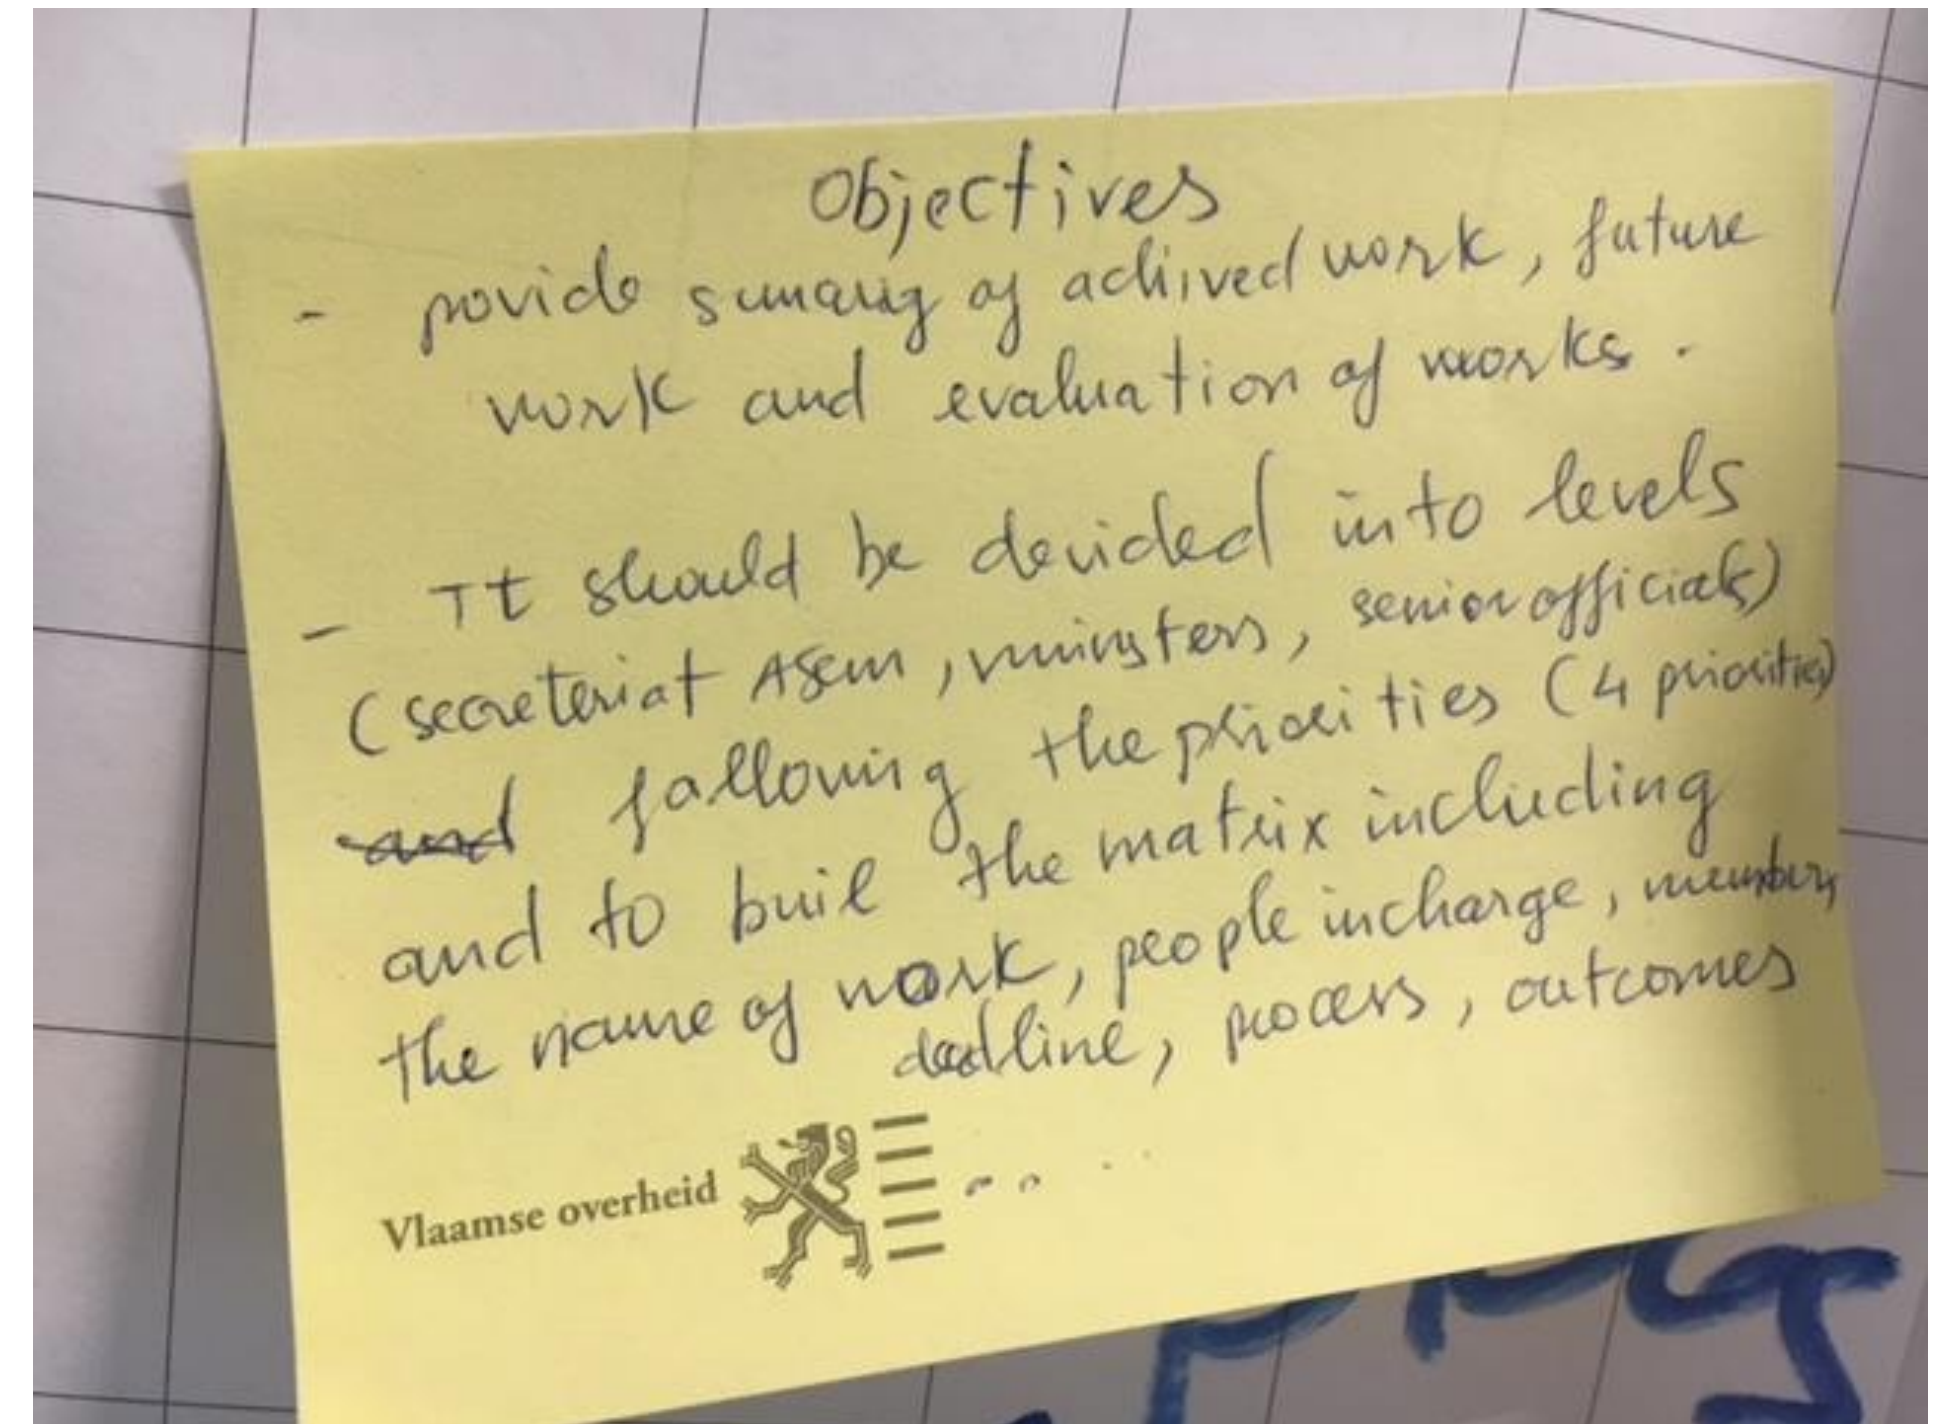 Objectives
- povide sumary of achived work, future
work and evaluation of works.
- It should be devided into levels
(secreteriat Asem, ministers, senior officials)
and following the priorities (4 priorities)
and to buil the matrix including
the name of work, people incharge, members,
deadline, process, outcomes
Vlaamse overheid